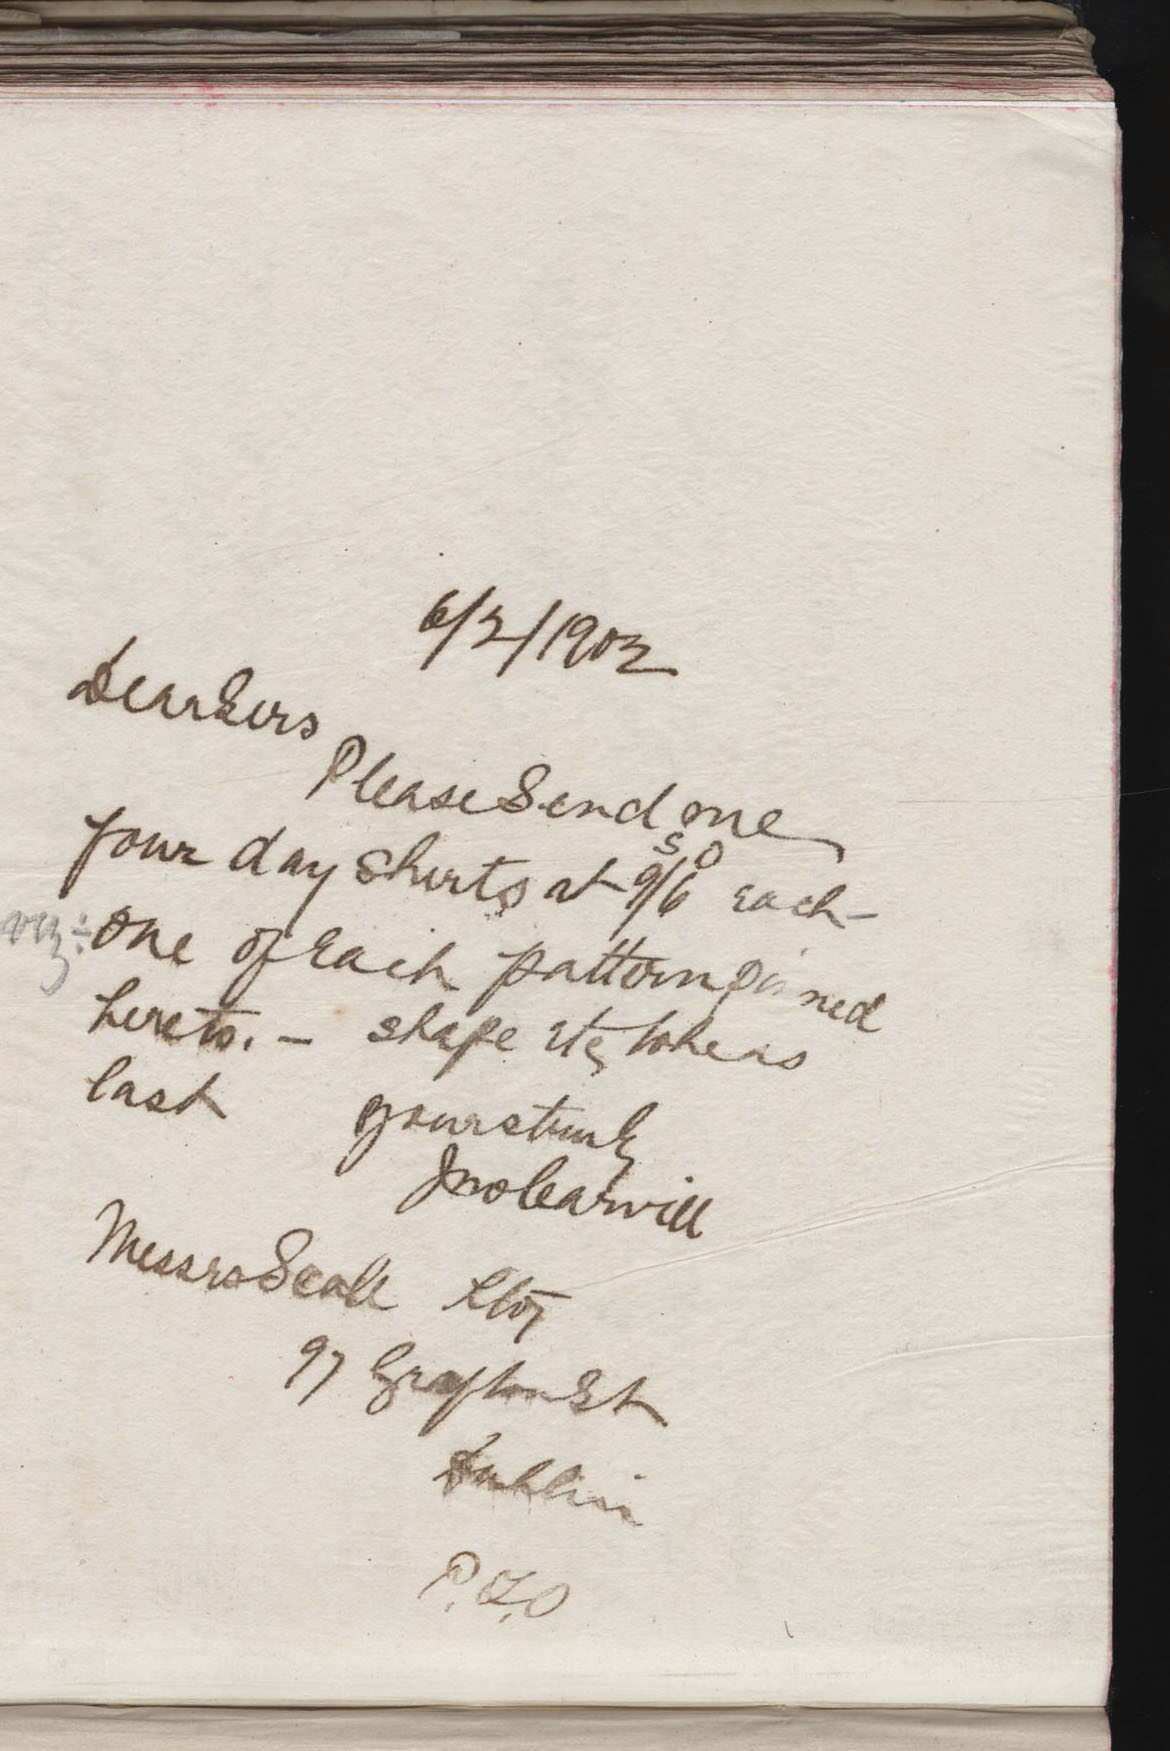 6/2/1902
Dear Sirs
Please Send me
four day shirts at 9s/6D each -
viz:- one of each pattern pinned
hereto. - shape etc to be as
last yours truly
Jno Carvill
Messrs Scall
97 Grafton St
Dublin
P.T.O